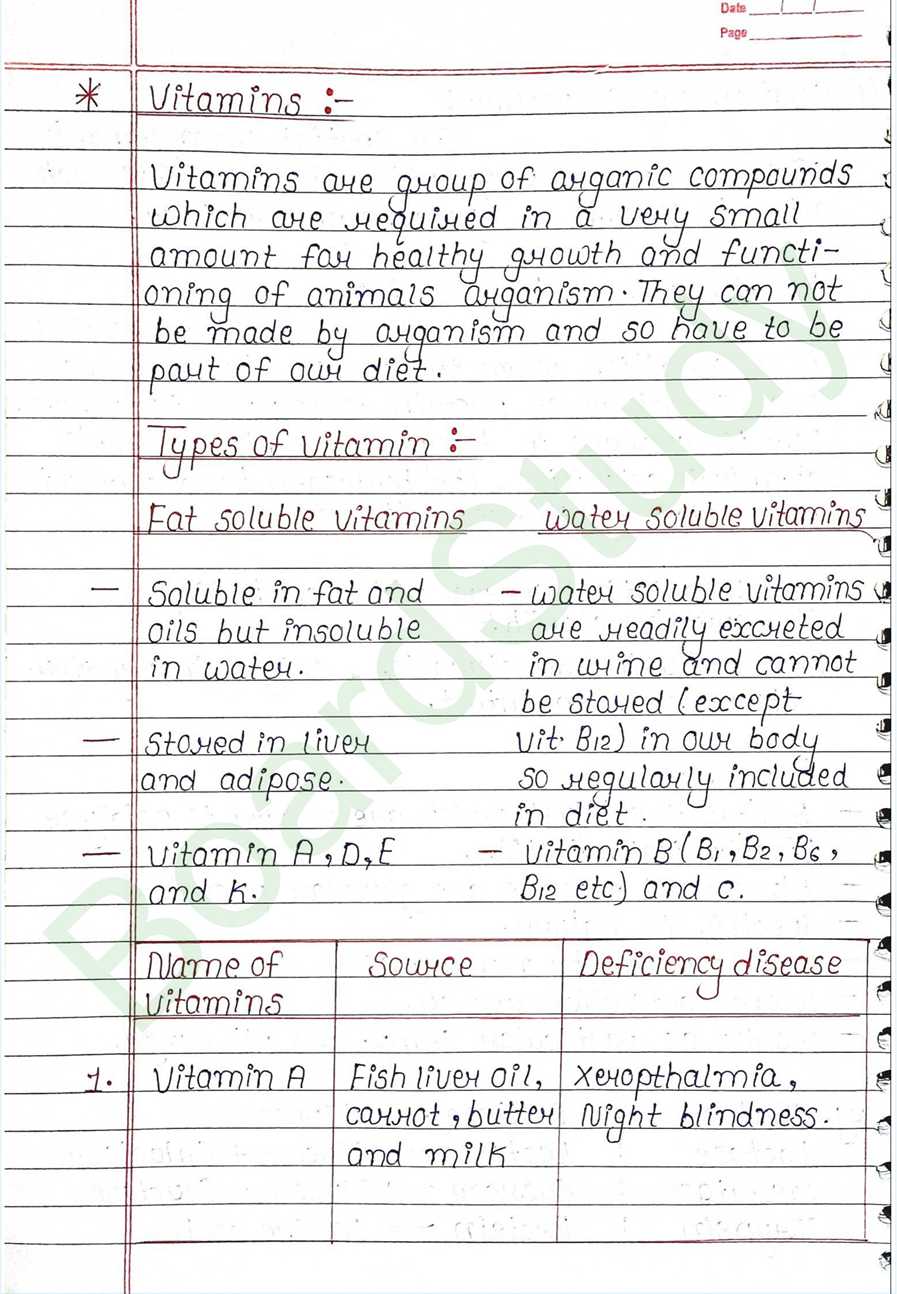 Date
Page
* Vitamins :-
Vitamins are group of organic compounds
which are required in a very small
amount for healthy growth and functi-
oning of animals organism. They can not
be made by organism and so have to be
part of our diet.
Types of vitamin :-
Fat soluble vitamins
- Soluble in fat and
oils but insoluble
in water.
- Stored in liver
and adipose.
- Vitamin A, D, E
and K.
water soluble vitamins
- water soluble vitamins
are readily excreted
in urine and cannot
be stored (except
vit. B12) in our body
so regularly included
in diet.
- Vitamin B (B1, B2, B6,
B12 etc) and c.
Name of
vitamins
Source
Deficiency disease
1. Vitamin A
Fish liver oil,
carrot, butter
and milk
Xeropthalmia,
Night blindness.
BoardStudy